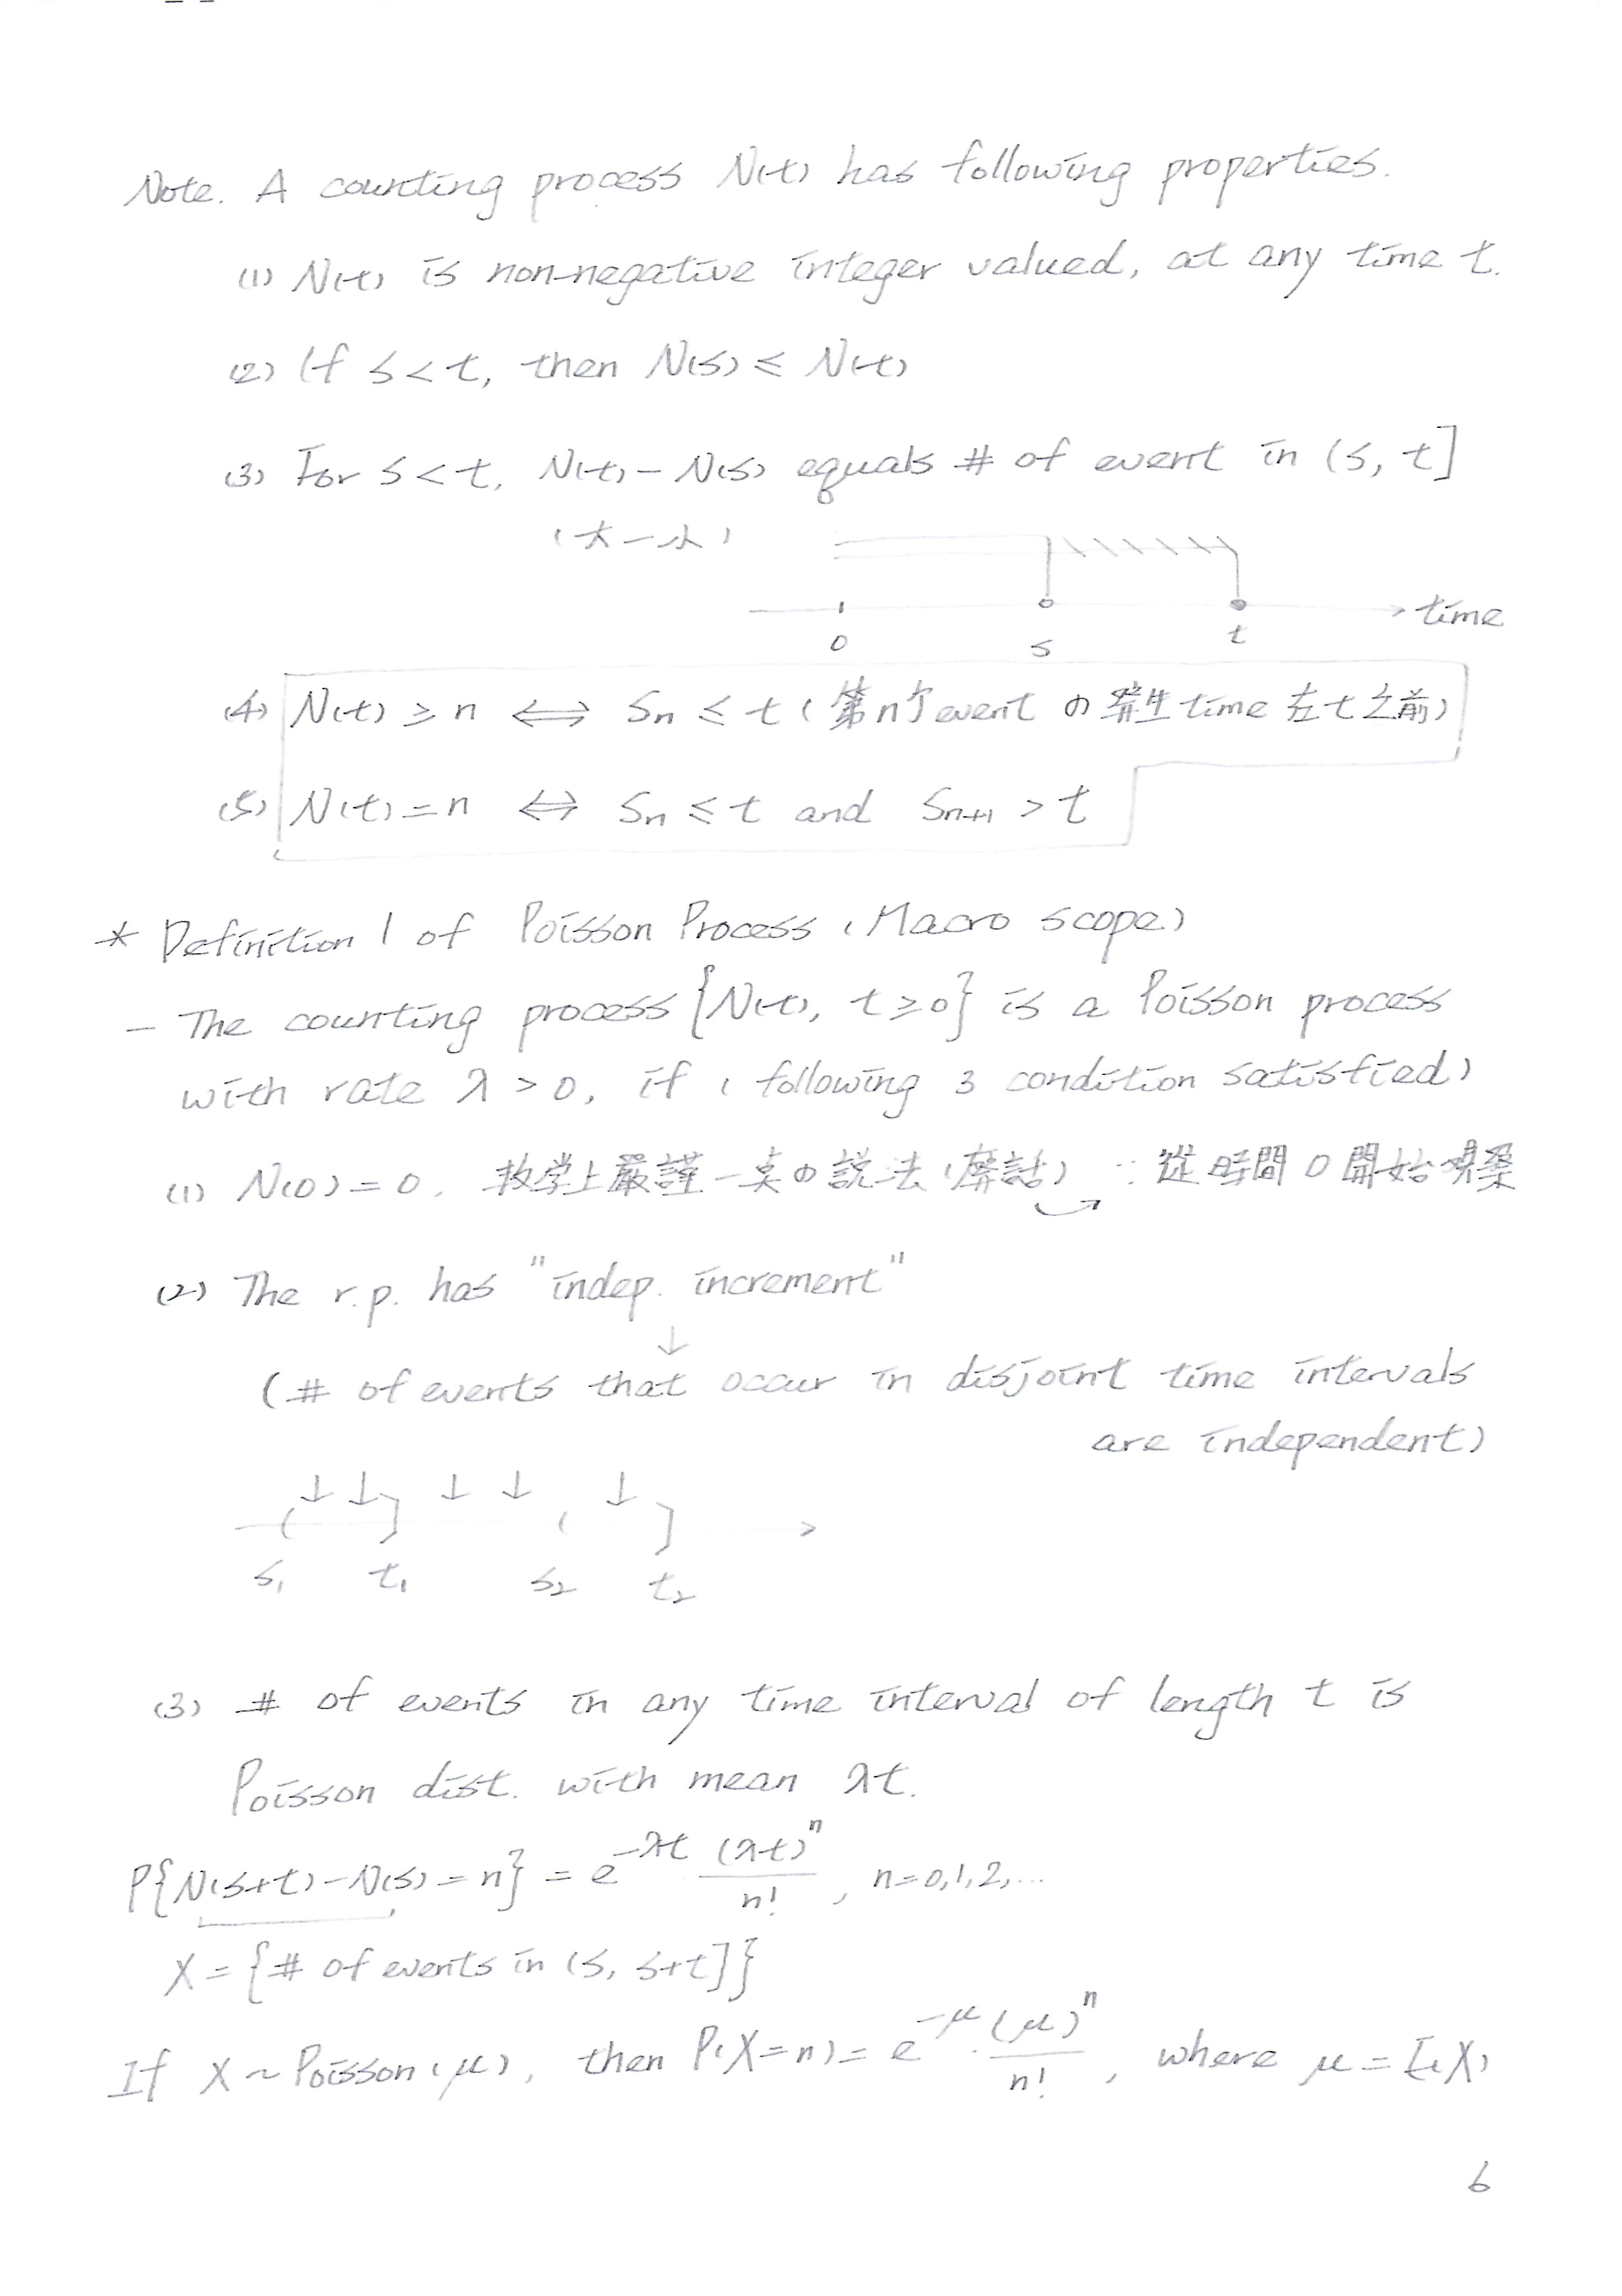 Note. A counting process N(t) has following properties.
(1) N(t) is non-negative integer valued, at any time t.
(2) If s < t, then N(s) ≤ N(t)
(3) For s < t, N(t) - N(s) equals # of event in (s, t]
(大 - 小)
time
0 s t
(4) N(t) ≥ n ⟺ Sn ≤ t (第n个event の 發生time 在 t 之前)
(5) N(t) = n ⟺ Sn ≤ t and Sn+1 > t
* Definition 1 of Poisson Process (Macro scope)
- The counting process {N(t), t ≥ 0} is a Poisson process
with rate λ > 0, if (following 3 condition satisfied)
(1) N(0) = 0. 数学上嚴謹一点の説法(廢話) : 從時間 0 開始觀察
(2) The r.p. has "indep. increment"
↓
(# of events that occur in disjoint time intervals
are independent)
↓ ↓ ↓ ↓ ↓
( ] ( ]
s1 t1 s2 t2
(3) # of events in any time interval of length t is
Poisson dist. with mean λt.
P{N(s+t)-N(s) = n} = e^{-λt} (λt)^n / n! , n=0,1,2,...
X = {# of events in (s, s+t]}
If X ~ Poisson(μ), then P(X=n) = e^{-μ} · (μ)^n / n! , where μ = E(X)
6